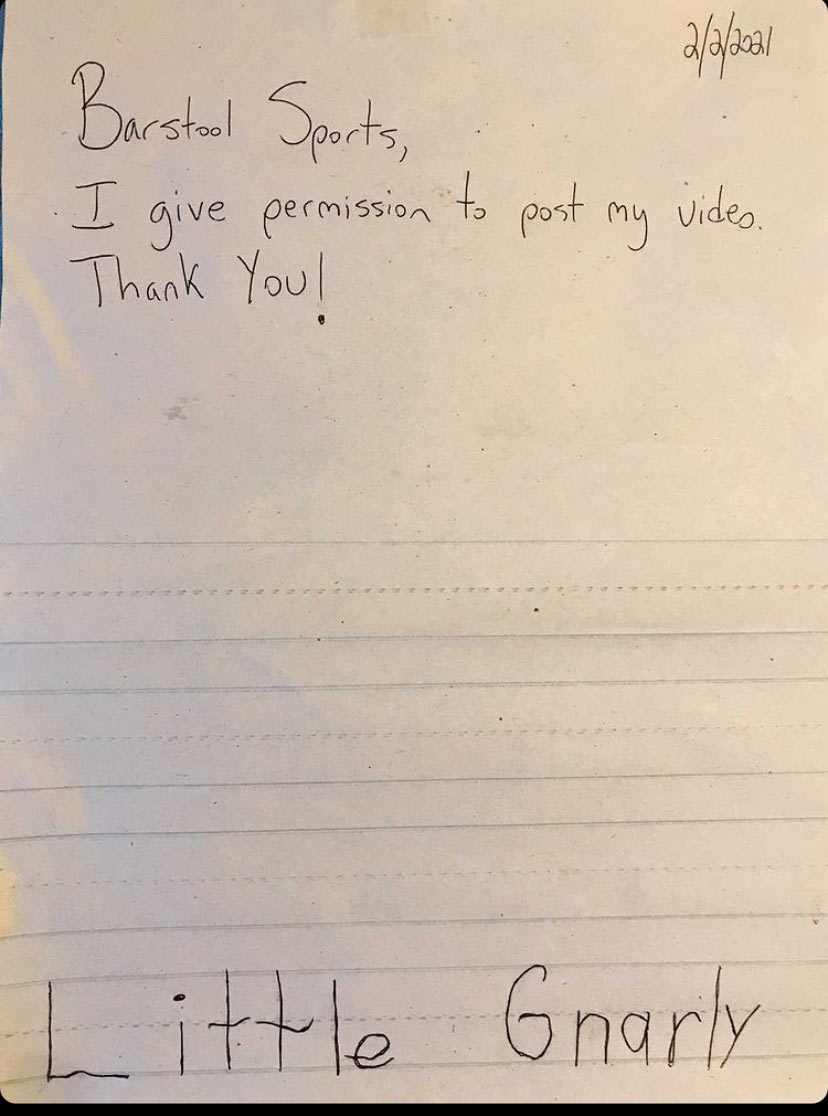 2/2/2021
Barstool Sports,
I give permission to post my video.
Thank You!
Little Gnarly